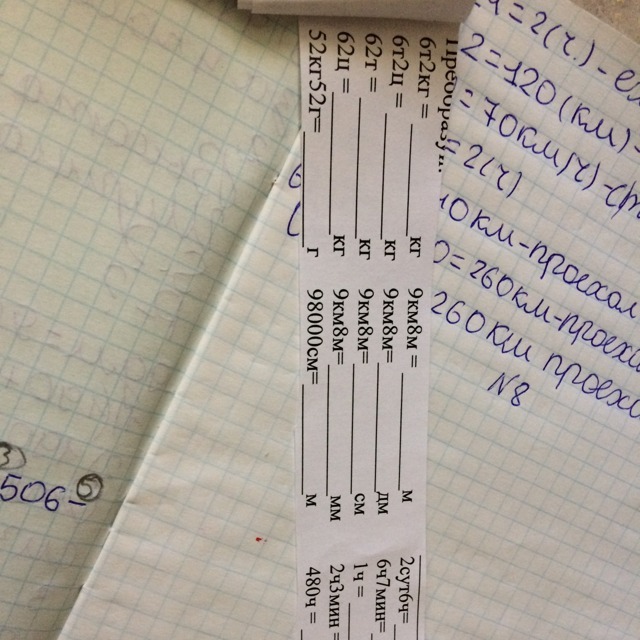 Преобразуй
6т2кг = ________ кг
6т2ц = ________ кг
62т = ________ кг
62ц = ________ кг
52кг52г= ________ г
9км8м = ________ м
9км8м= ________ дм
9км8м= ________ см
9км8м= ________ мм
98000см= ________ м
2сут6ч=
6ч7мин=
1ч =
2ч3мин =
480ч =
= 2(ч) -
2 = 120 (км) -
= 70км/ч -
= 2(ч)
10 км - проехал
0 = 260 км - проеха
260 км проеха
N8
3
506 - 5